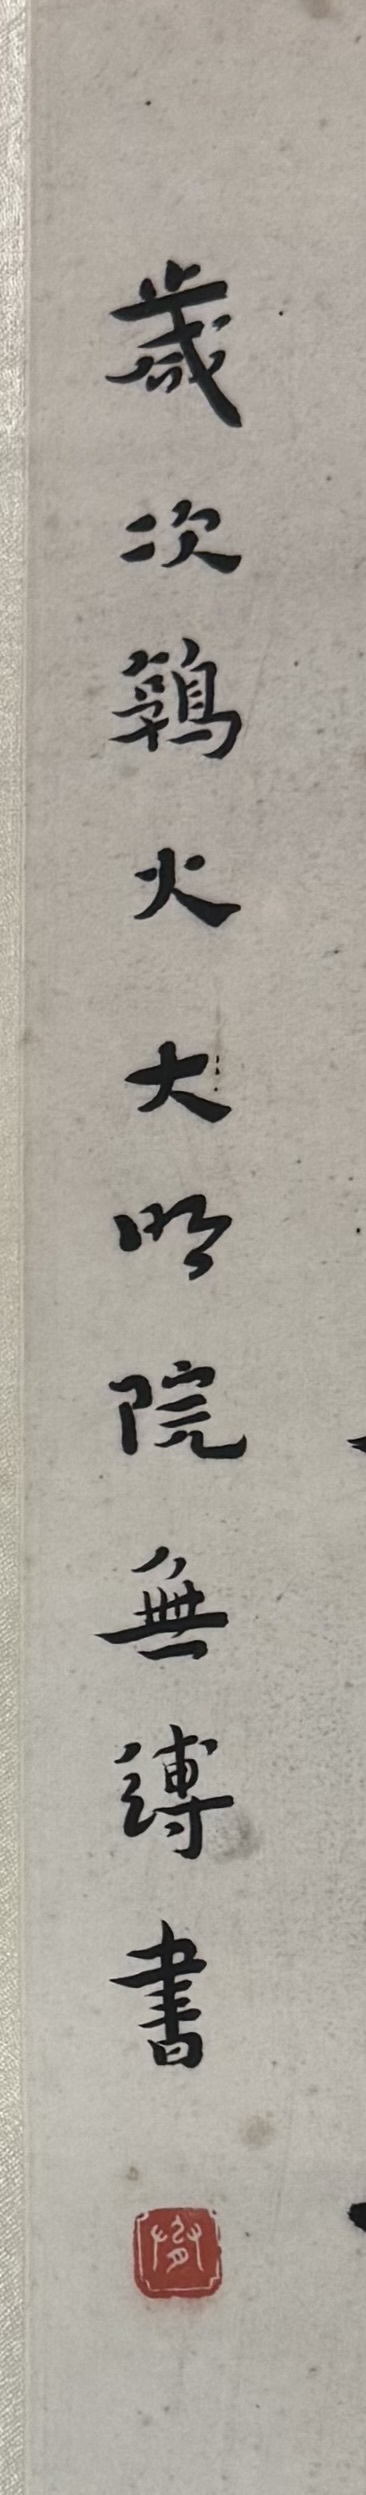 歲次鶉火大明院無縛書